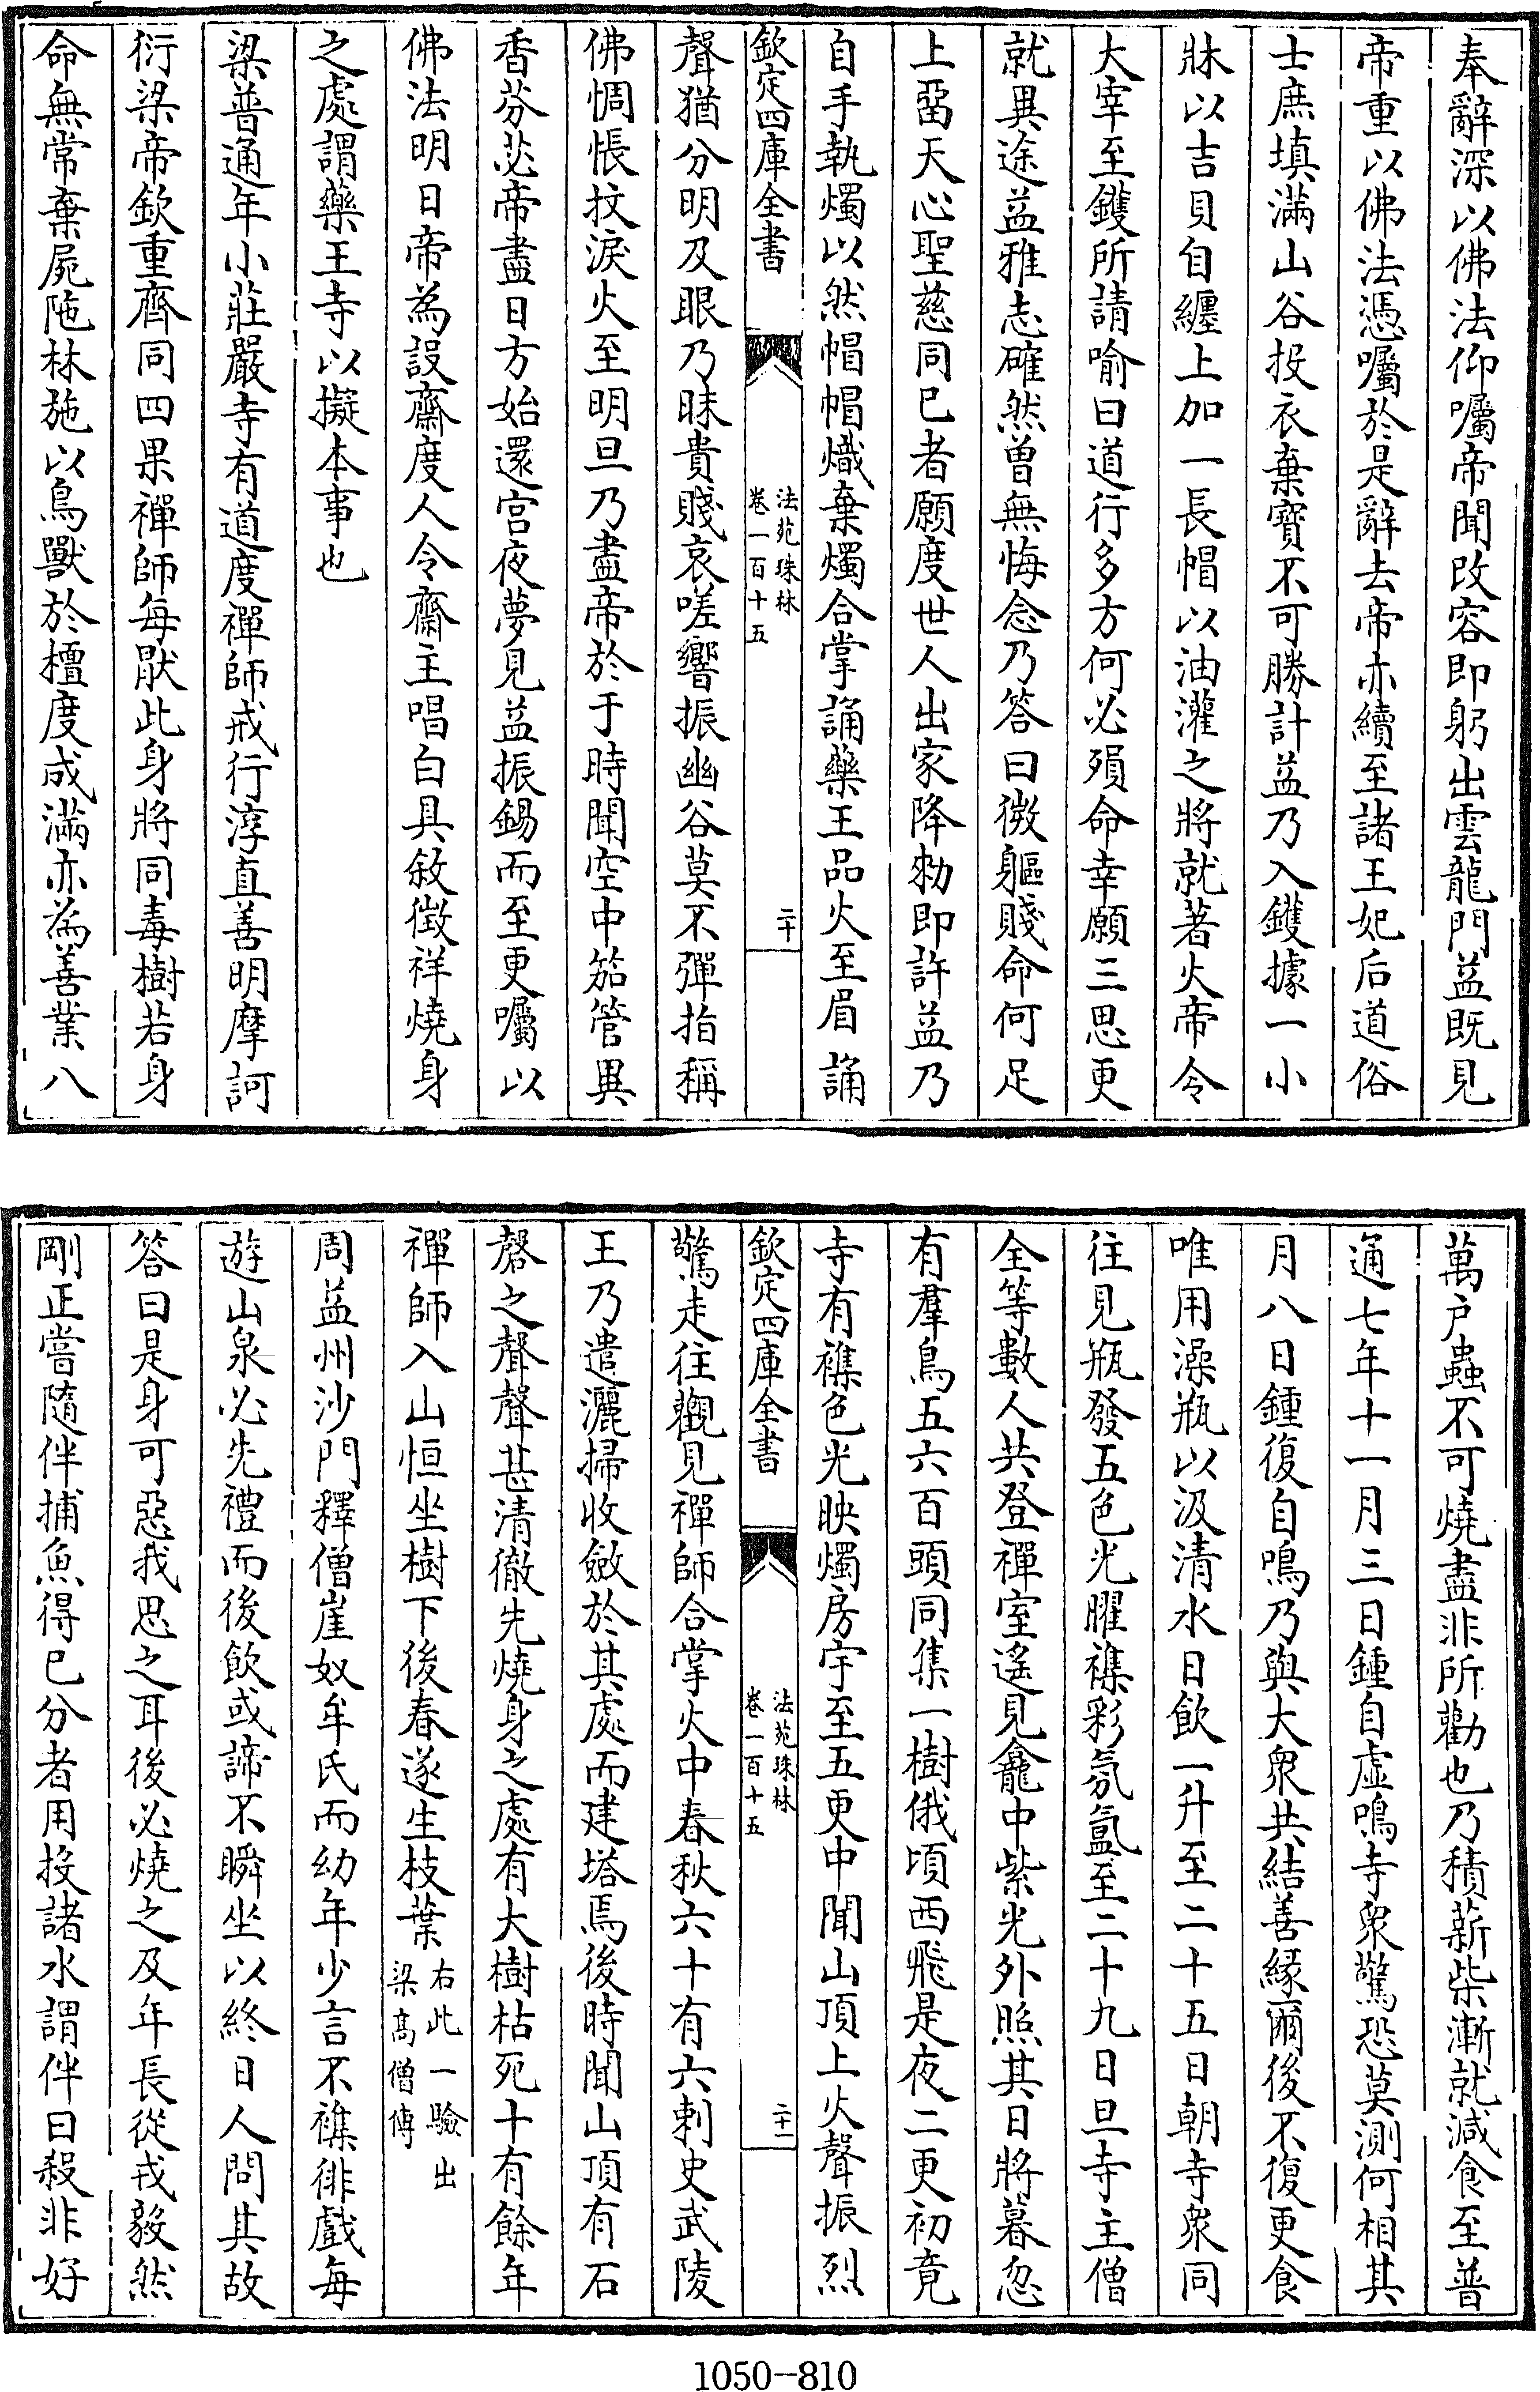 奉辭深以佛法仰囑帝聞改容即躬出雲龍門益既見
帝重以佛法憑囑於是辭去帝亦續至諸王妃后道俗
士庶填滿山谷投衣棄寶不可勝計益乃入鑊據一小
牀以吉貝自纏上加一長帽以油灌之將就著火帝令
大宰至鑊所請喻曰道行多方何必殞命幸願三思更
就異途益雅志確然曽無悔念乃答曰微軀賤命何足
上畱天心聖慈同已者願度世人出家降勑即許益乃
自手執燭以然帽帽熾棄燭合掌誦藥王品火至眉誦
欽定四庫全書
法苑珠林
卷一百十五
二十
聲猶分明及眼乃昧貴賤哀嗟響振幽谷莫不彈指稱
佛惆悵抆淚火至明旦乃盡帝於于時聞空中笳管異
香芬苾帝盡日方始還宫夜夢見益振錫而至更囑以
佛法明日帝為設齋度人令齋主唱白具敘徴祥燒身
之處謂藥王寺以擬本事也
梁普通年小莊嚴寺有道度禪師戒行淳直善明摩訶
衍梁帝欽重齊同四果禪師每猒此身將同毒樹若身
命無常棄屍陁林施以鳥獸於檀度成滿亦為善業八
萬户蟲不可燒盡非所勸也乃積薪柴漸就減食至普
通七年十一月三日鍾自虚鳴寺衆驚恐莫測何相其
月八日鍾復自鳴乃與大衆共結善縁爾後不復更食
唯用澡瓶以汲清水日飲一升至二十五日朝寺衆同
往見瓶發五色光曜襍彩氛氳至二十九日旦寺主僧
全等數人共登禪室遙見龕中紫光外照其日將暮忽
有羣鳥五六百頭同集一樹俄頃西飛是夜二更初竟
寺有襍色光映燭房宇至五更中聞山頂上火聲振烈
欽定四庫全書
法苑珠林
卷一百十五
二十一
驚走往觀見禪師合掌火中春秋六十有六剌史武陵
王乃遣灑掃收斂於其處而建塔焉後時聞山頂有石
磬之聲聲甚清徹先燒身之處有大樹枯死十有餘年
禪師入山恒坐樹下後春遂生枝葉
右此一驗出
梁髙僧傳
周益州沙門釋僧崖奴牟氏而幼年少言不襍俳戲每
遊山泉必先禮而後飲或諦不瞬坐以終日人問其故
答曰是身可惡我思之耳後必燒之及年長從戎毅然
剛正嘗隨伴捕魚得已分者用投諸水謂伴曰殺非好
1050-810